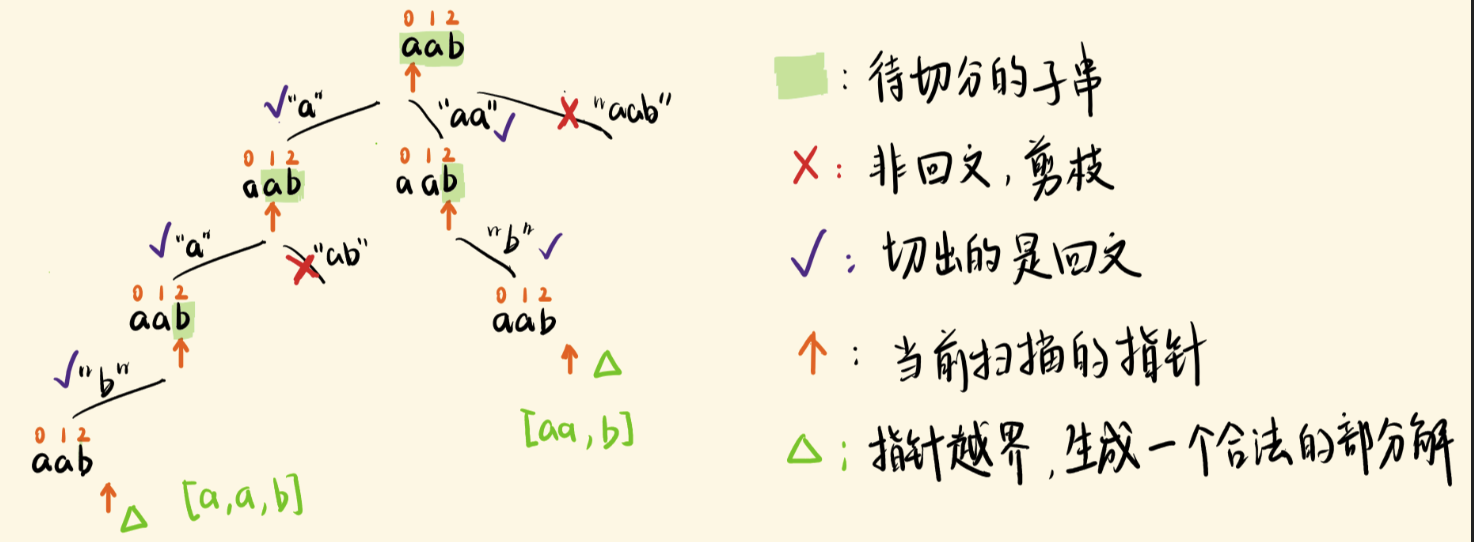 0 1 2
aab
"a"
"aa"
"aab"
0 1 2
aab
0 1 2
aab
"a"
"ab"
"b"
0 1 2
aab
0 1 2
aab
"b"
[aa,b]
0 1 2
aab
[a,a,b]
: 待切分的子串
: 非回文,剪枝
: 切出的是回文
: 当前扫描的指针
: 指针越界,生成一个合法的部分解